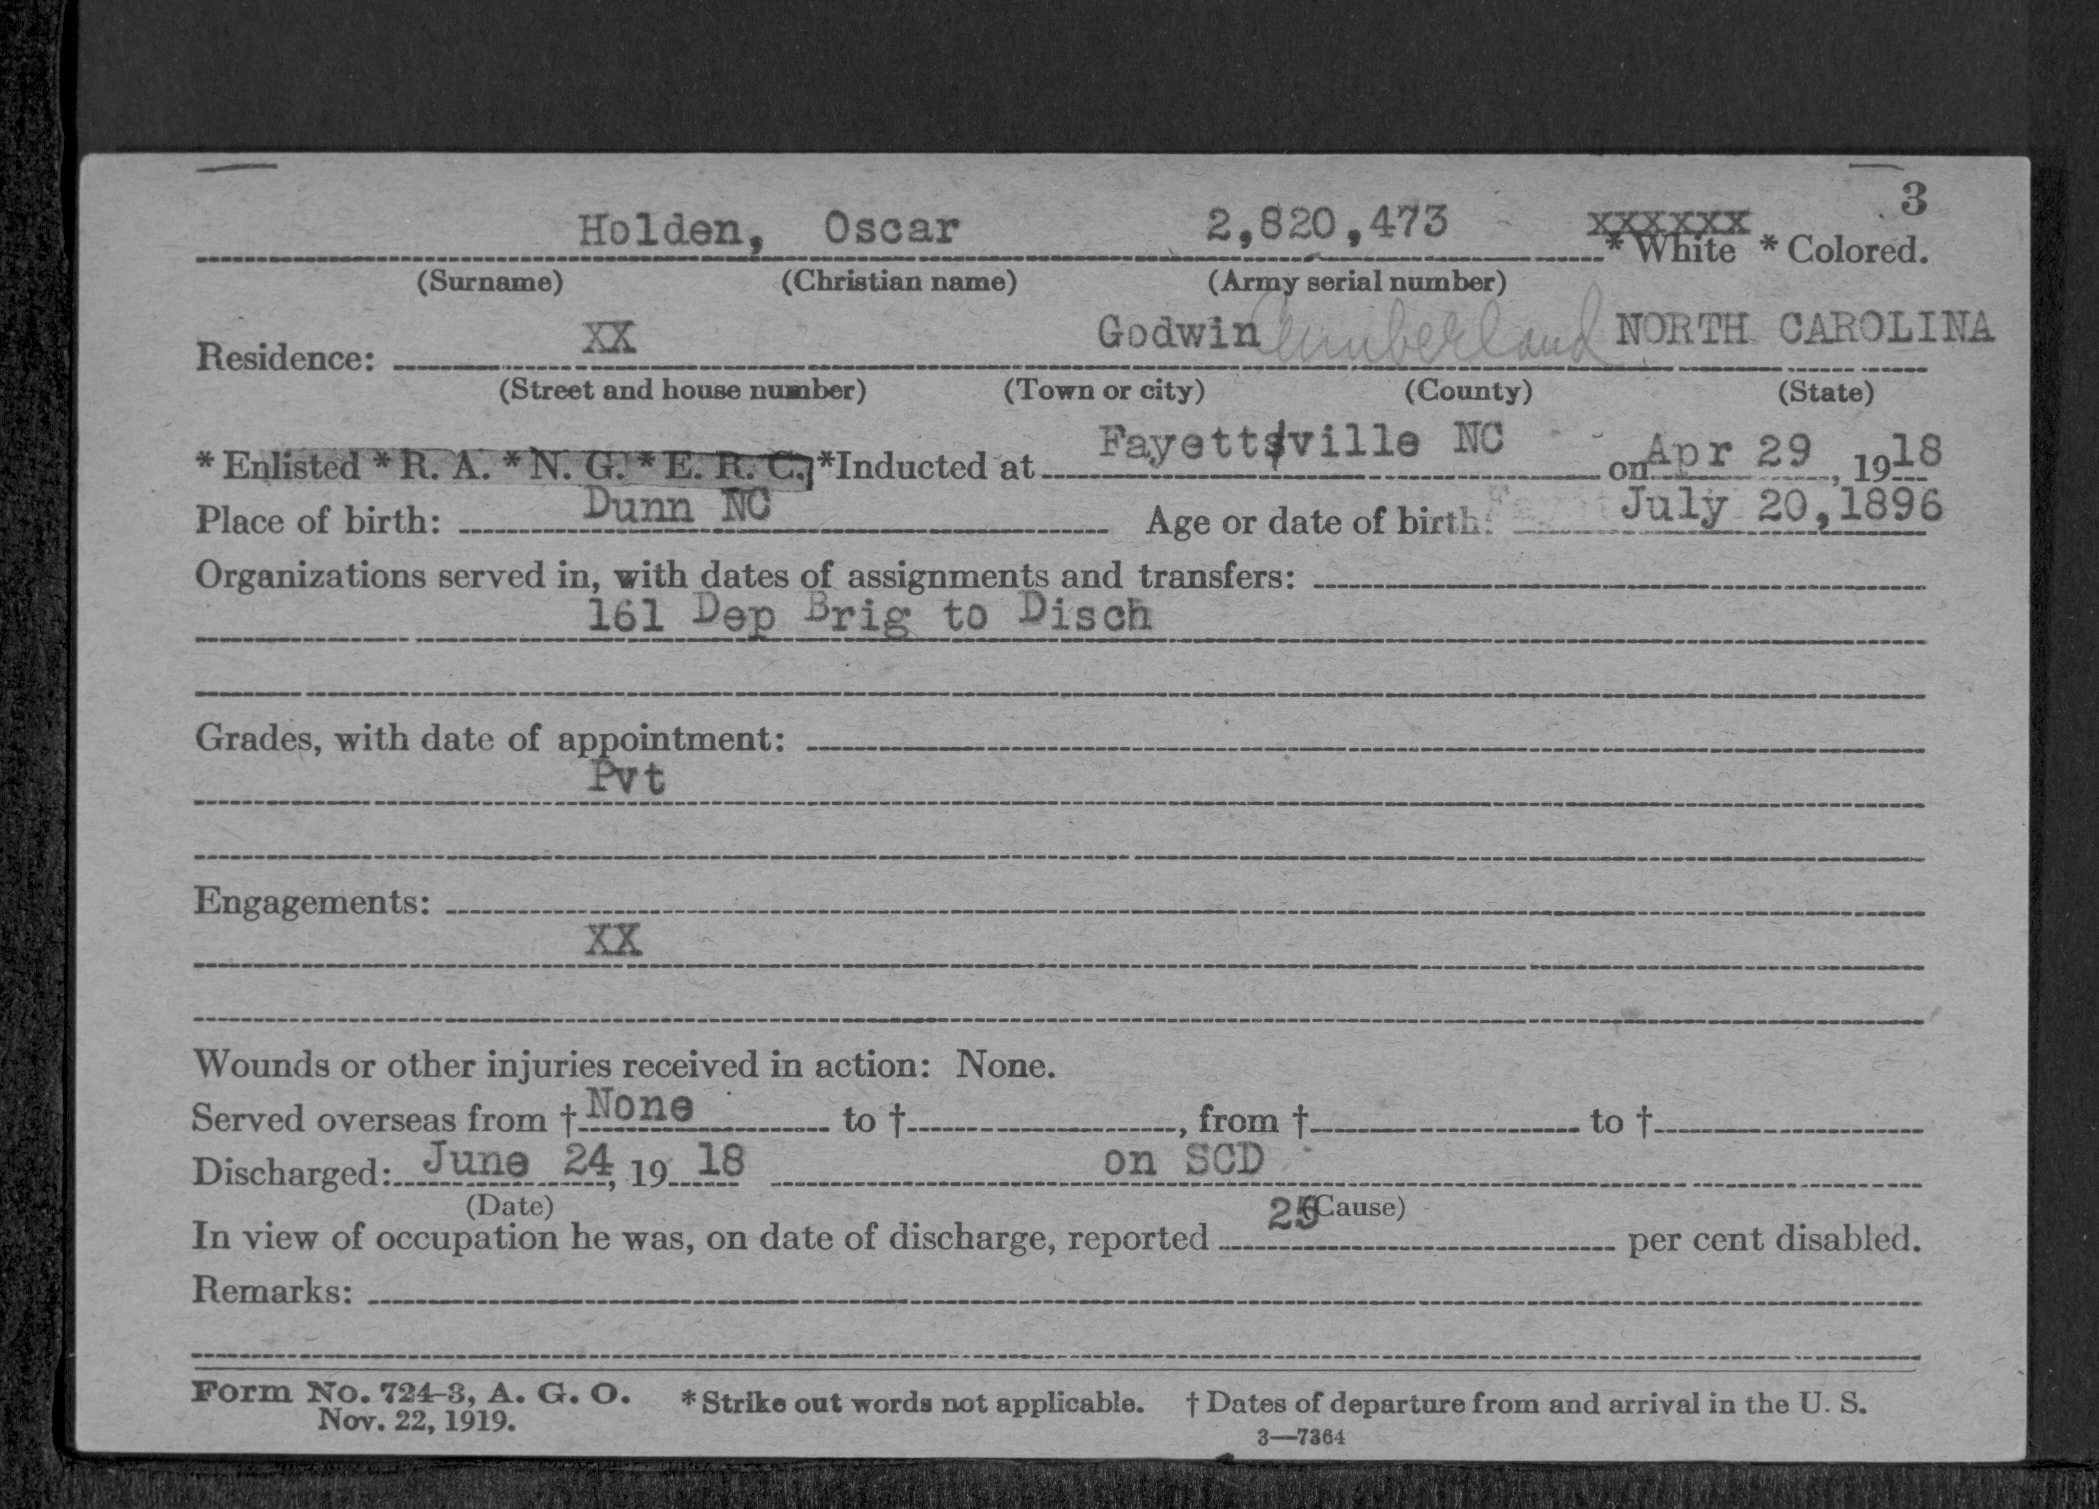 3
Holden, Oscar 2,820,473 xxxxxx * White * Colored.
(Surname) (Christian name) (Army serial number)
Residence: XX Godwin Cumberland NORTH CAROLINA
(Street and house number) (Town or city) (County) (State)
* Enlisted * R. A. * N. G. * E. R. C. *Inducted at Fayettsville NC on Apr 29, 1918
Place of birth: Dunn NC Age or date of birth: July 20,1896
Organizations served in, with dates of assignments and transfers:
161 Dep Brig to Disch
Grades, with date of appointment:
Pvt
Engagements:
XX
Wounds or other injuries received in action: None.
Served overseas from † None to †, from † to †
Discharged: June 24, 19 18 on SCD
(Date) (Cause)
In view of occupation he was, on date of discharge, reported 25 per cent disabled.
Remarks:
Form No. 724-3, A. G. O. * Strike out words not applicable. † Dates of departure from and arrival in the U. S.
Nov. 22, 1919. 3—7364